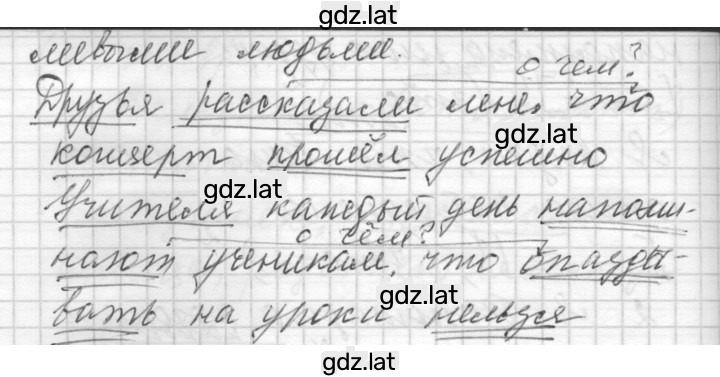 gdz.lat
ливыми людьми.
о чем?
Друзья рассказали мне, что
gdz.lat
концерт прошёл успешно
gdz.lat
Учителя каждый день напоми-
о чём?
нают ученикам, что опазды-
gdz.lat
вать на уроки нельзя
gdz.lat